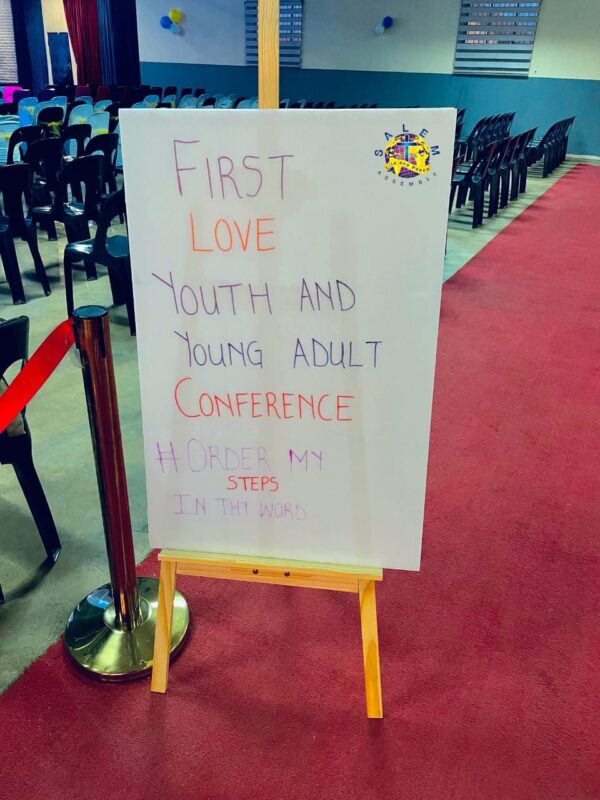 SALEM
ASSEMBLY
FIRST
LOVE
YOUTH AND
YOUNG ADULT
CONFERENCE
# ORDER MY
STEPS
IN THY WORD